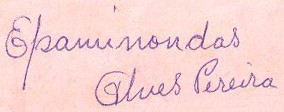 Epaminondas
Alves Pereira